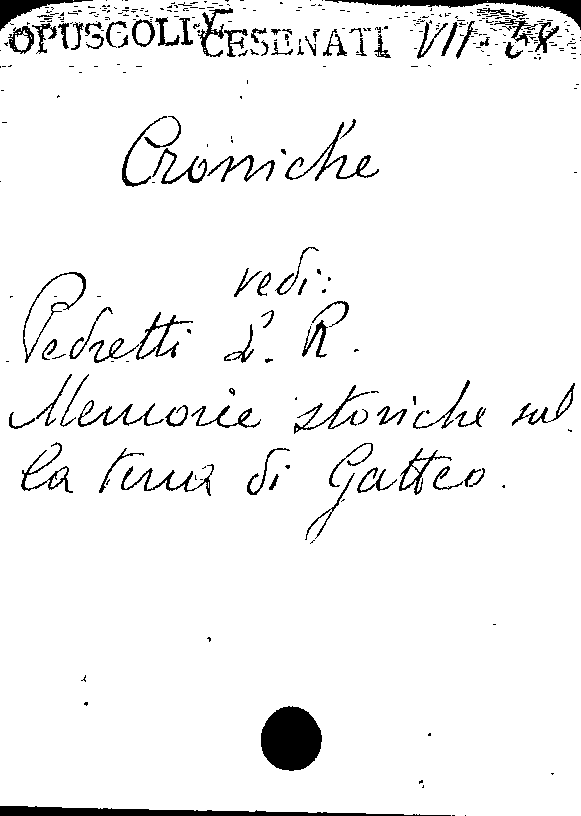 OPUSCOLI CESENATI VII-58
Croniche
vedi:
Pedretti L. R.
Memorie storiche sul
la terra di Gatteo.